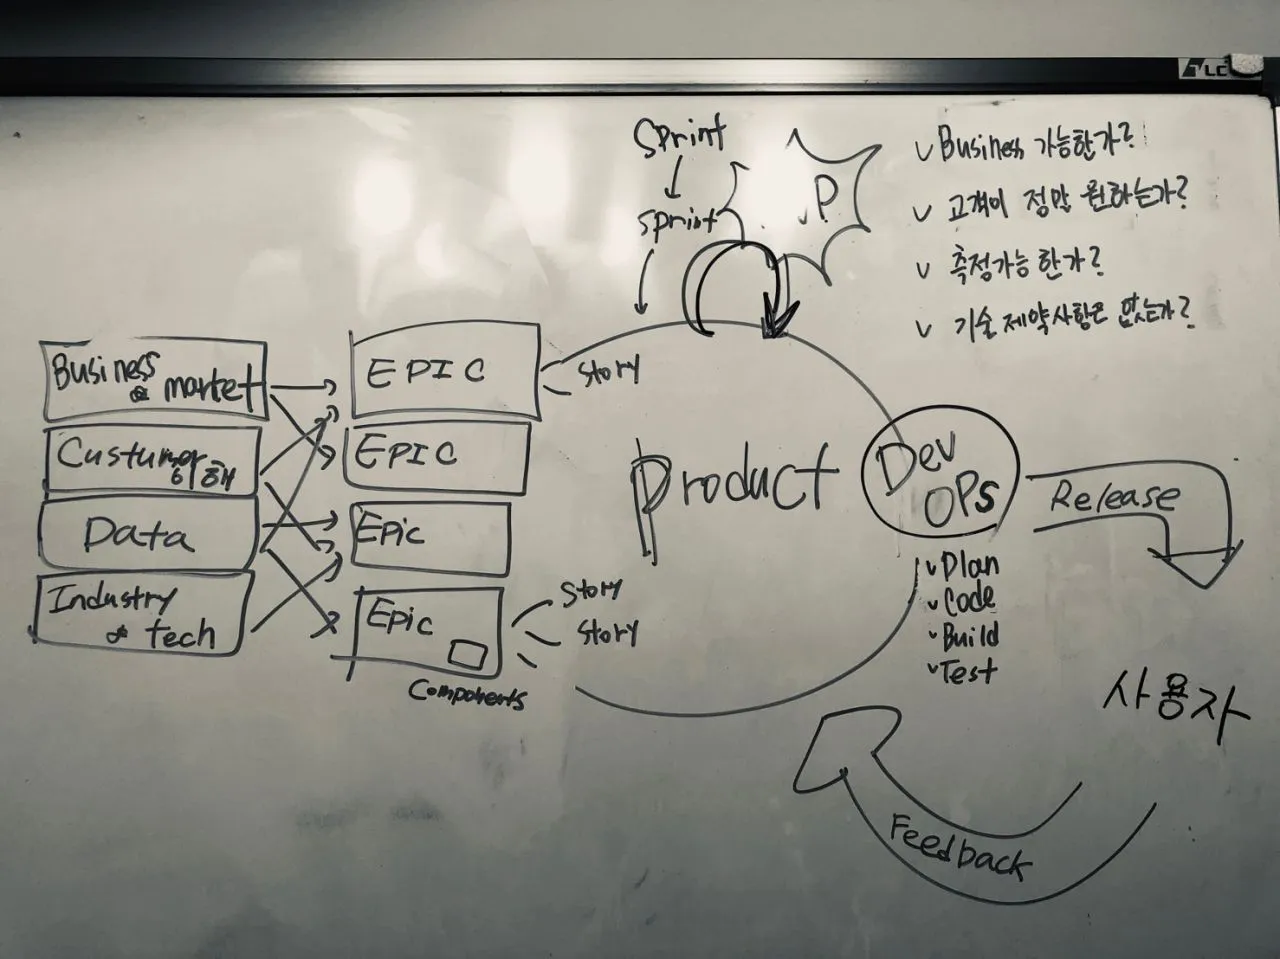 Sprint
Sprint
P
v Business 가능한가?
v 고객이 정말 원하는가?
v 측정가능한가?
v 기술 제약사항은 없는가?
Business
& market
Custumer
이해
Data
Industry
& tech
EPIC
EPIC
Epic
Epic
Components
story
story
story
Product
Dev
OPs
v Plan
v Code
v Build
v Test
Release
사용자
Feedback